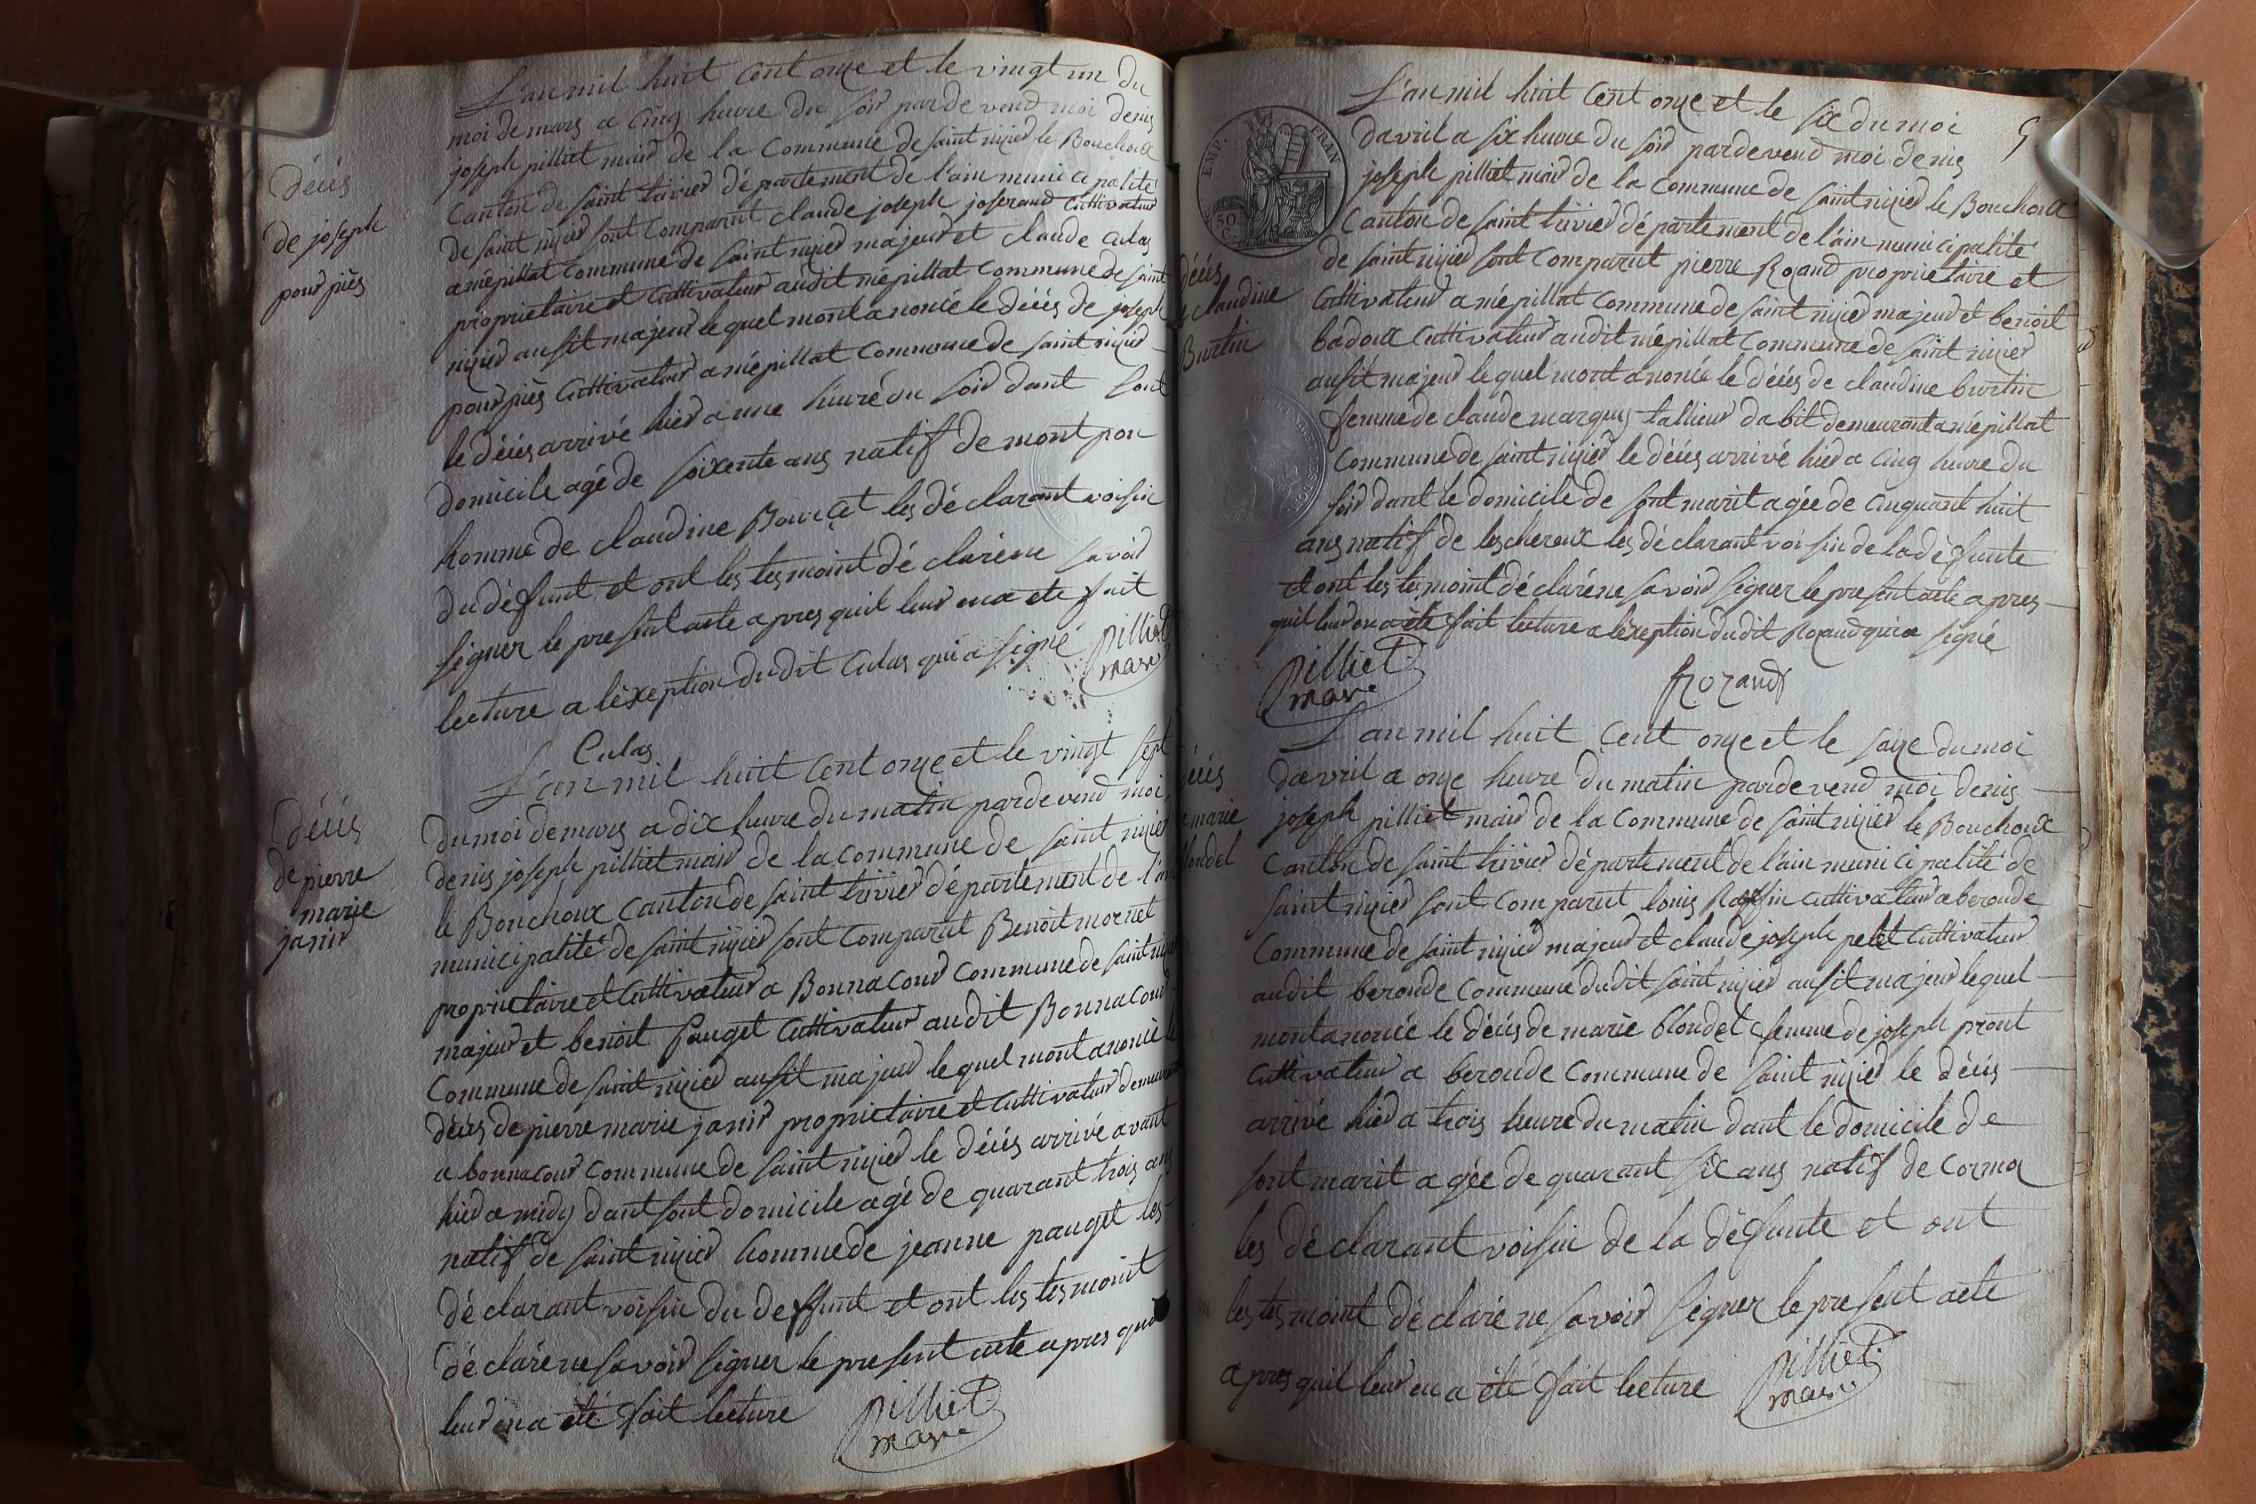 décés
de joseph
pour piès
L'an mil huit cent onze et le vingt un du
moi de mars a cinq heure du soir pardevend moi denis
joseph pilliet mair de la commune de saint nizier le Bouchoux
canton de saint trivier département de l'ain municipalité
de saint nizier sont comparut claude joseph joserand cultivateur
a mépillat commune de saint nizier majeur et claude culas
proprietaire et cultivateur audit mépillat commune de saint
nizier ausit majeur lequel mont anoncé le décés de joseph
pour piès cultivateur a mépillat commune de saint nizier
le décés arrivé hier a une heure du soir dant sont
domicile agé de soixente ans natif de montpon
homme de claudine les déclarant voisin
du défunt et ont les tesmoint déclaré ne savoir
signer le present acte apres quil leur en a ete fait
lecture a léxeption dudit Culas qui a signé
pilliet
mare
Culas
décés
de pierre
marie
janin
L'an mil huit cent onze et le vingt sept
du moi de mars a dix heure du matin pardevend moi
denis joseph pilliet mair de la commune de saint nizier
le Bouchoux canton de saint trivier département de l'ain
municipalité de saint nizier sont comparut Benoit mornet
proprietaire et cultivateur a Bonnacour commune de saint nizier
majeur et benoit pauget cultivateur audit Bonnacour
commune de saint nizier ausit majeur lequel mont anoncé le
décés de pierre marie janin proprietaire et cultivateur demeurant
a bonnacour commune de saint nizier le décés arrivé avant
hier a midy dant sont domicile agé de quarant trois ans
natif de saint nizier homme de jeanne pauget les
déclarant voisin du deffunt et ont les tesmoint
déclaré ne savoir signer le present acte apres quil
leur en a été fait lecture
pilliet
mare
EMP. FRAN
50
C
5
décés
claudine
Burtin
L'an mil huit cent onze et le six du moi
davril a six heure du soir pardevend moi denis
joseph pilliet mair de la commune de saint nizier le Bouchoux
canton de saint trivier département de l'ain municipalité
de saint nizier sont comparut pierre Rozand proprietaire et
cultivateur a mépillat commune de saint nizier majeur et benoit
badoux cultivateur audit mépillat commune de saint nizier
ausit majeur lequel mont anoncé le décés de claudine burtin
femme de claude marguis tallieur dabit demeurant a mépillat
commune de saint nizier le décés arrivé hier a cinq heure du
soir dant le domicile de sont marit agée de cinquant huit
ans natif de lescheroux les déclarant voisin de la défunte
et ont les tesmoint déclaré ne savoir signer le present acte apres
quil leur en a été fait lecture a léxeption dudit Rozand qui a signé
pilliet
mare
Rozand
décés
marie
blondel
L'an mil huit cent onze et le saize du moi
davril a onze heure du matin pardevend moi denis
joseph pilliet mair de la commune de saint nizier le Bouchoux
canton de saint trivier département de l'ain municipalité de
saint nizier sont comparut louis Raffin cultivateur a beroude
commune de saint nizier majeur et claude joseph petet cultivateur
audit beroude commune dudit saint nizier ausit majeur lequel
mont anoncée le décés de marie blondel femme de joseph pront
cultivateur a beroude commune de saint nizier le décés
arrivé hier a trois heure du matin dant le domicile de
sont marit agée de quarant six ans natif de cormoz
les déclarant voisin de la défunte et ont
les tesmoint déclaré ne savoir signer le present acte
apres quil leur en a été fait lecture
pilliet
mare